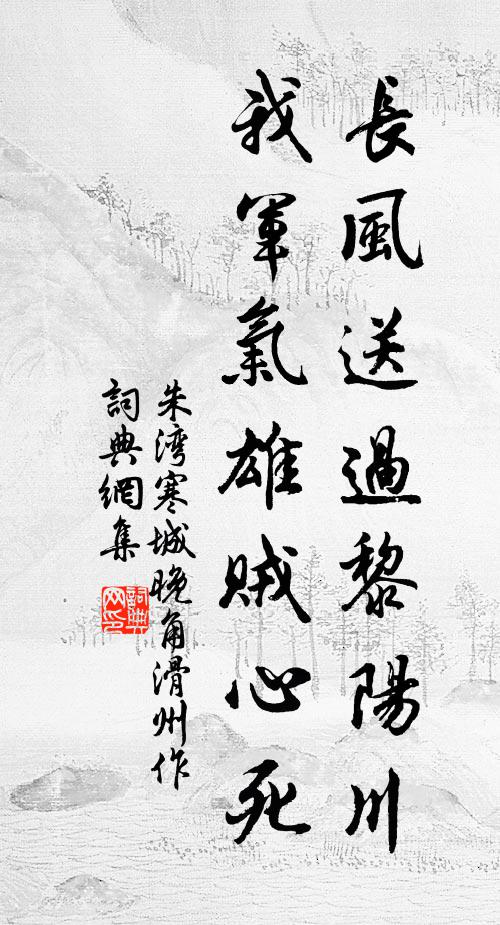 長風送過黎陽川
我軍氣雄賊心死
朱湾寒城晚角滑州作
詞典網集
詞典
网印